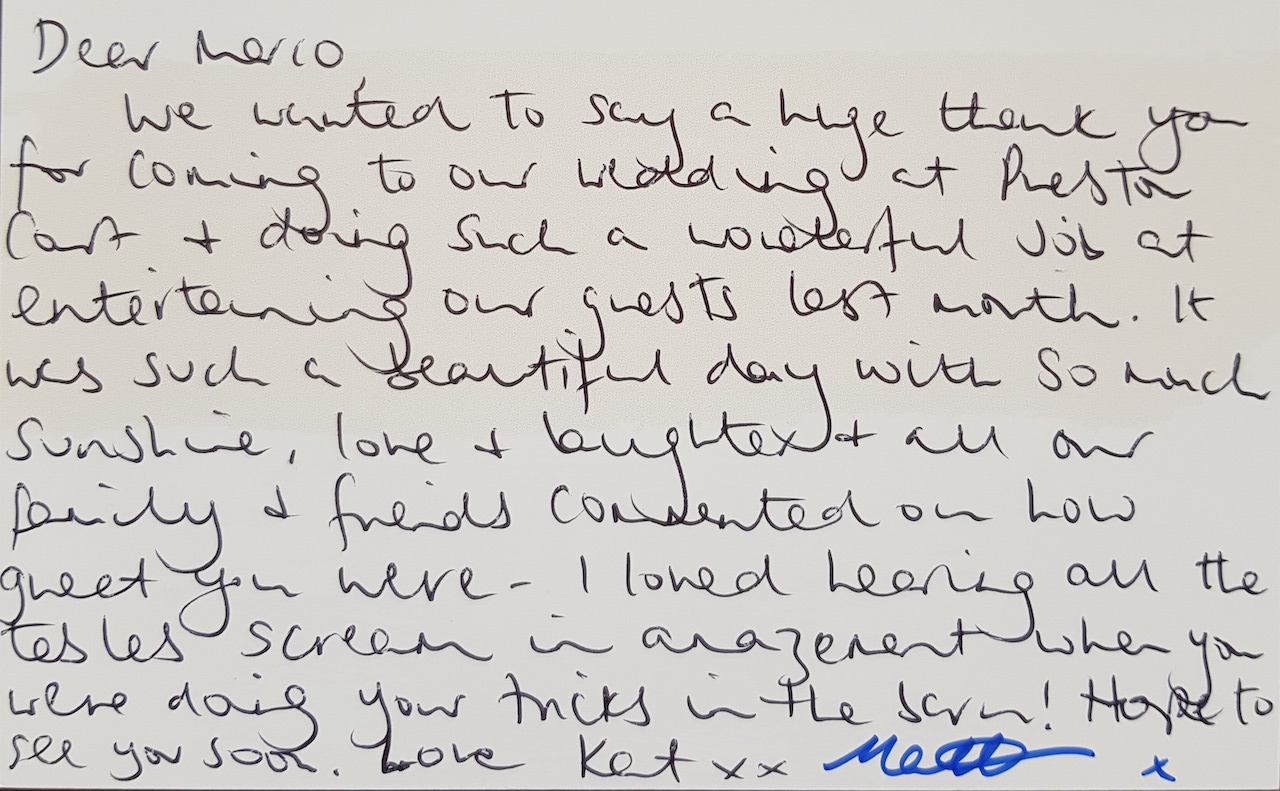 Dear Marco,
We wanted to say a huge thank you
for coming to our wedding at Preston
Court + doing such a wonderful job at
entertaining our guests last month. It
was such a beautiful day with so much
sunshine, love + laughter + all our
family + friends commented on how
great you were - I loved hearing all the
tables scream in amazement when you
were doing your tricks in the barn! Hope to
see you soon. Love Kat xx Matt x